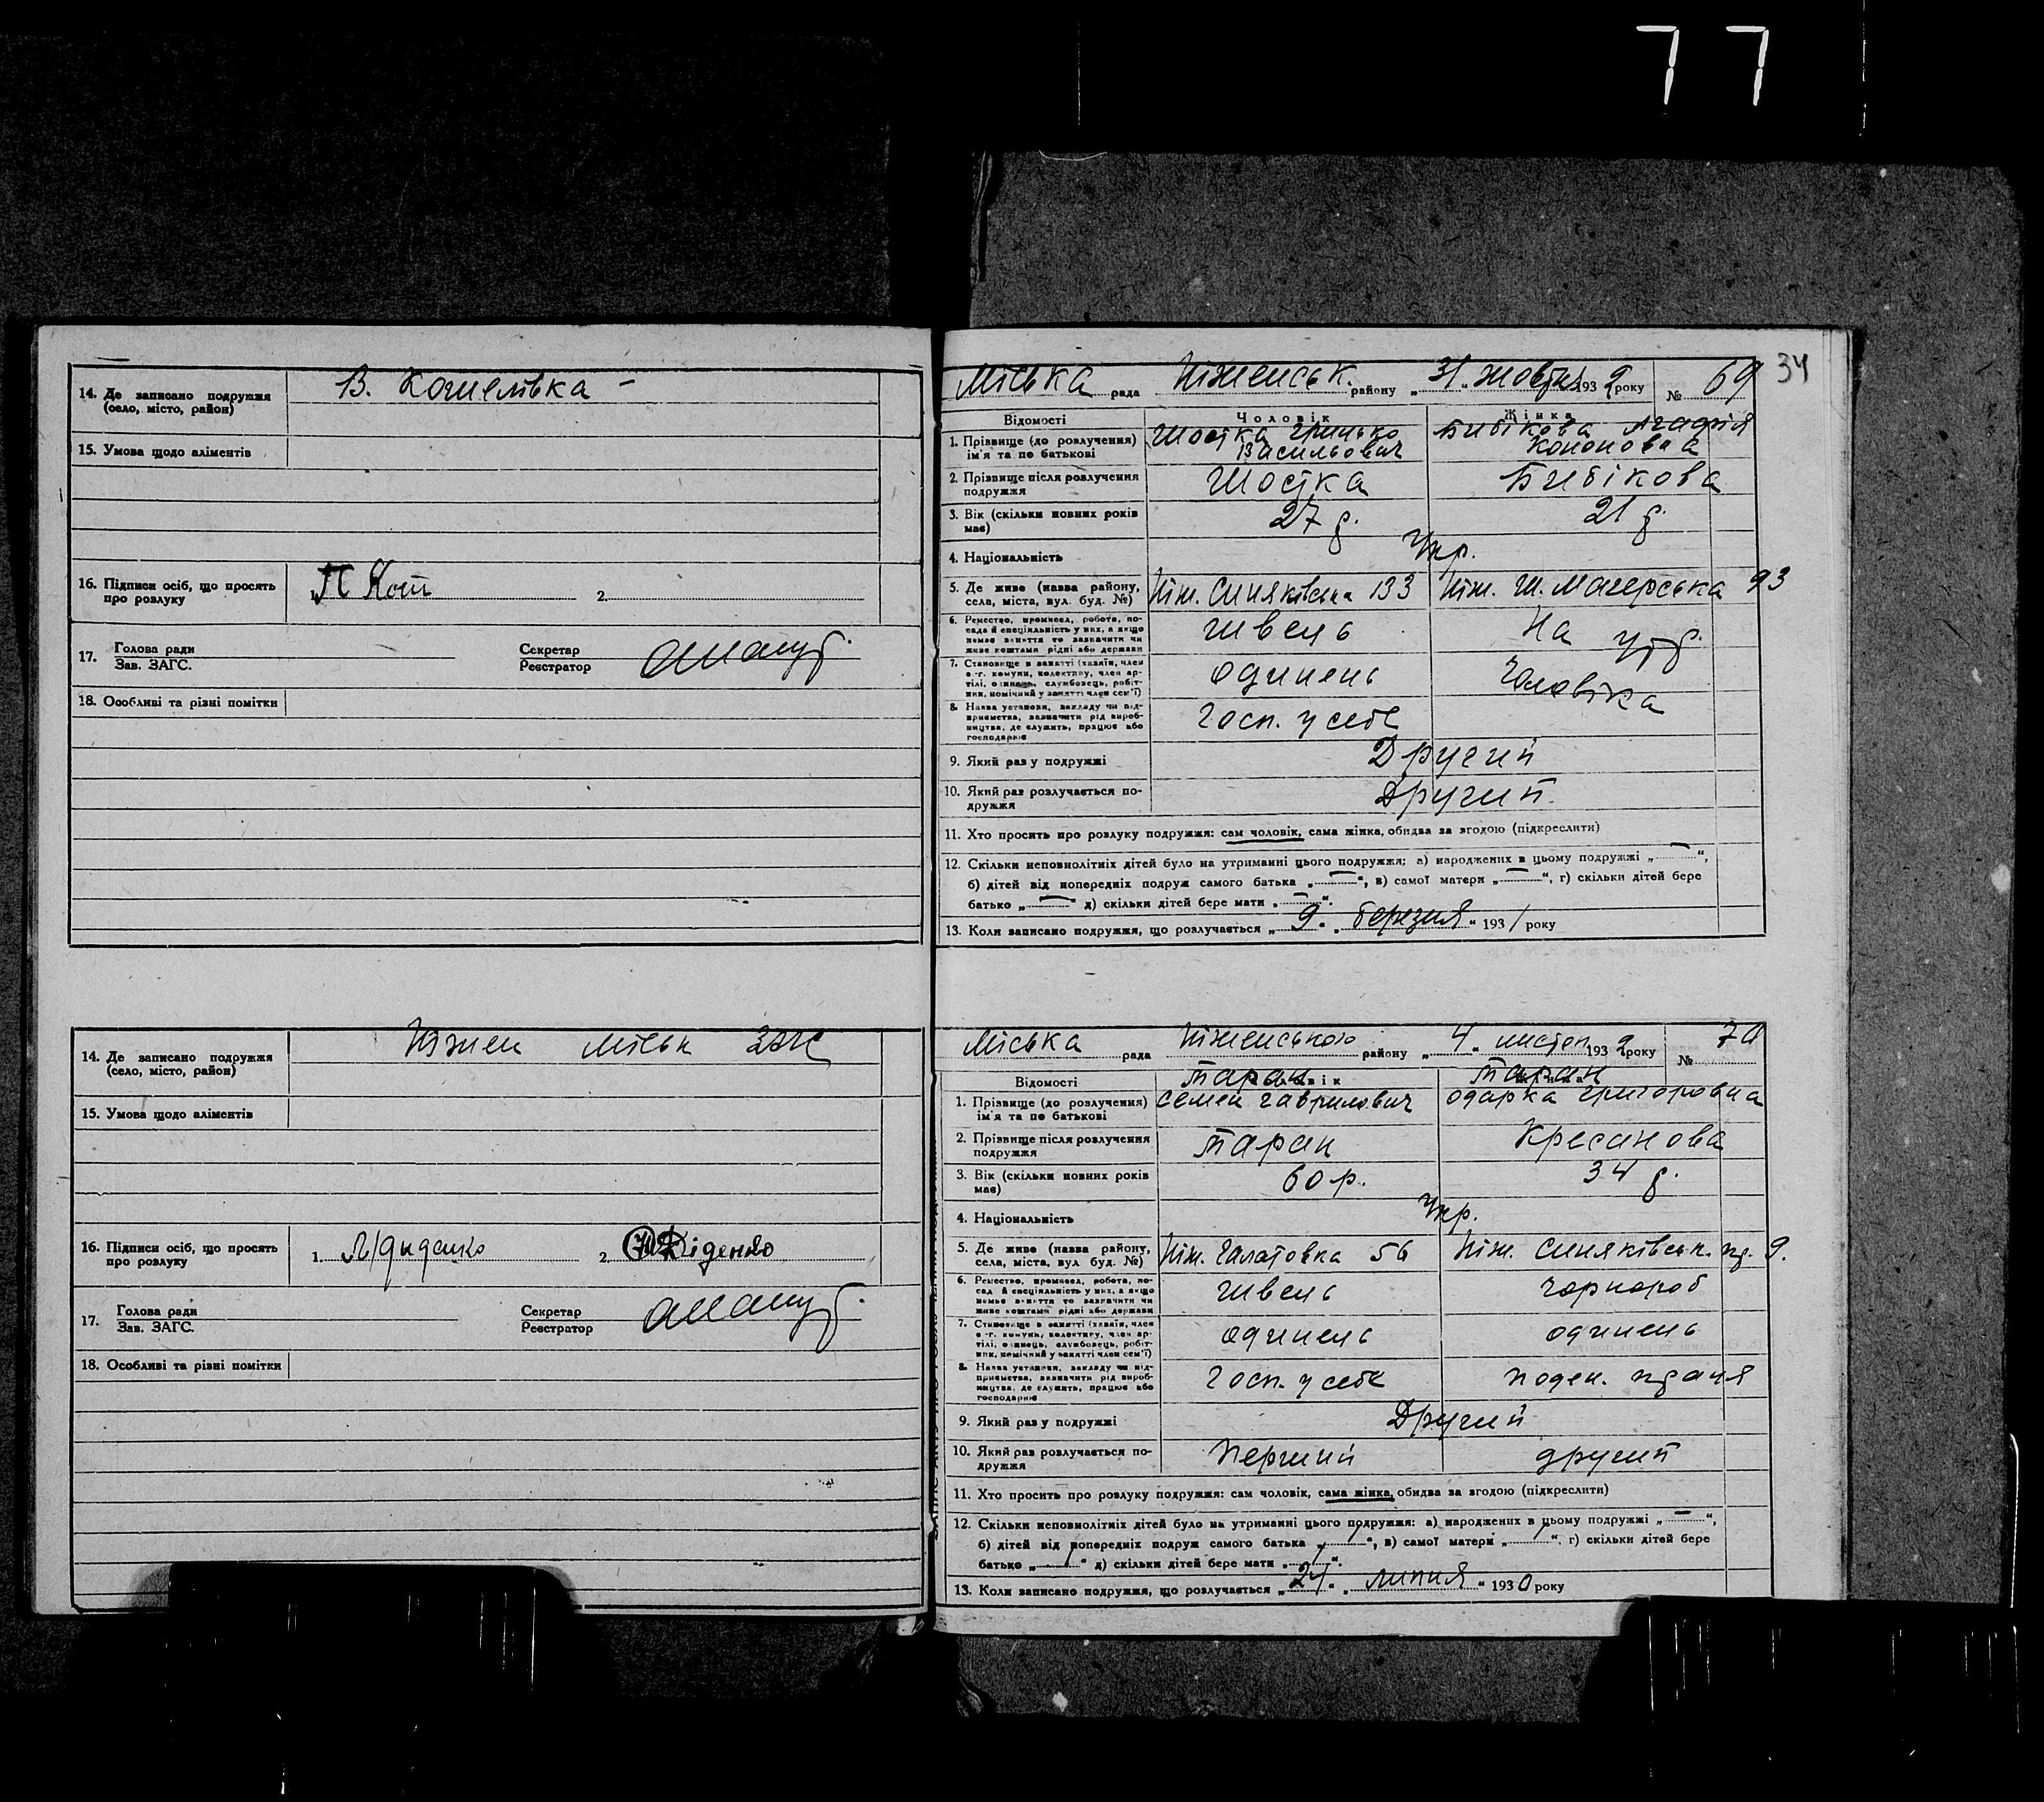 77
14. Де записано подружжя (село, місто, район) В. Кошелівка –
15. Умова щодо аліментів
16. Підписи осіб, що просять про розлуку 1. П Кот 2.
17. Голова ради Зав. ЗАГС. Секретар Реєстратор
18. Особливі та різні помітки
14. Де записано подружжя (село, місто, район) Ніжен міськ ЗАГС
15. Умова щодо аліментів
16. Підписи осіб, що просять про розлуку 1. 2. Діденко
17. Голова ради Зав. ЗАГС. Секретар Реєстратор
18. Особливі та різні помітки
34
Міська рада Ніженськ. району „31“ жовтня 1932 року № 69
Відомості Чоловік Жінка
1. Прізвище (до розлучення) ім'я та по батькові Шостка Грицько Васильович Бибікова Агафія Кононовна
2. Прізвище після розлучення подружжя Шостка Бибікова
3. Вік (скільки повних років має) 27 р. 21 р.
4. Національність Укр.
5. Де живе (назва району, села, міста, вул. буд. №) Ніж. Синяківська 133 Ніж. Ш. Магерська 93
6. Ремество, промисел, робота, посада й спеціяльність у них, а якщо немає заняття то зазначити чи живе коштами рідні або держави Швець На утр.
7. Становище в занятті (хазяїн, член с.-г. комуни, колективу, член артілі, одинець, службовець, робітник, помічний у занятті член сем'ї) одинець Чоловіка
8. Назва установи, закладу чи підприємства, зазначити рід виробництва, де служить, працює або господарює Госп. у себе
9. Який раз у подружжі Другий
10. Який раз розлучається подружжя Другий
11. Хто просить про розлуку подружжя: сам чоловік, сама жінка, обидва за згодою (підкреслити)
12. Скільки неповнолітніх дітей було на утриманні цього подружжя: а) народжених в цьому подружжі „—“,
б) дітей від попередніх подруж самого батька „—“, в) самої матери „—“, г) скільки дітей бере
батько „—“ д) скільки дітей бере мати „—“.
13. Коли записано подружжя, що розлучається „9“ „березня“ 1931 року
Міська рада Ніженського району „4“ листоп 1932 року № 70
Відомості Чоловік Жінка
1. Прізвище (до розлучення) ім'я та по батькові Таран Семен Гаврилович Таран Одарка Григоровна
2. Прізвище після розлучення подружжя Таран Кресанова
3. Вік (скільки повних років має) 60 р. 34 р.
4. Національність Укр.
5. Де живе (назва району, села, міста, вул. буд. №) Ніж. Галатовка 56 Ніж. Синяківськ. 9.
6. Ремество, промисел, робота, посада й спеціяльність у них, а якщо немає заняття то зазначити чи живе коштами рідні або держави Швець Чорнороб
7. Становище в занятті (хазяїн, член с.-г. комуни, колективу, член артілі, одинець, службовець, робітник, помічний у занятті член сем'ї) одинець одинець
8. Назва установи, закладу чи підприємства, зазначити рід виробництва, де служить, працює або господарює Госп. у себе поден.
9. Який раз у подружжі Другий
10. Який раз розлучається подружжя Перший другий
11. Хто просить про розлуку подружжя: сам чоловік, сама жінка, обидва за згодою (підкреслити)
12. Скільки неповнолітніх дітей було на утриманні цього подружжя: а) народжених в цьому подружжі „—“,
б) дітей від попередніх подруж самого батька „/“, в) самої матери „/“, г) скільки дітей бере
батько „/“ д) скільки дітей бере мати „/“.
13. Коли записано подружжя, що розлучається „24“ „липня“ 1930 року